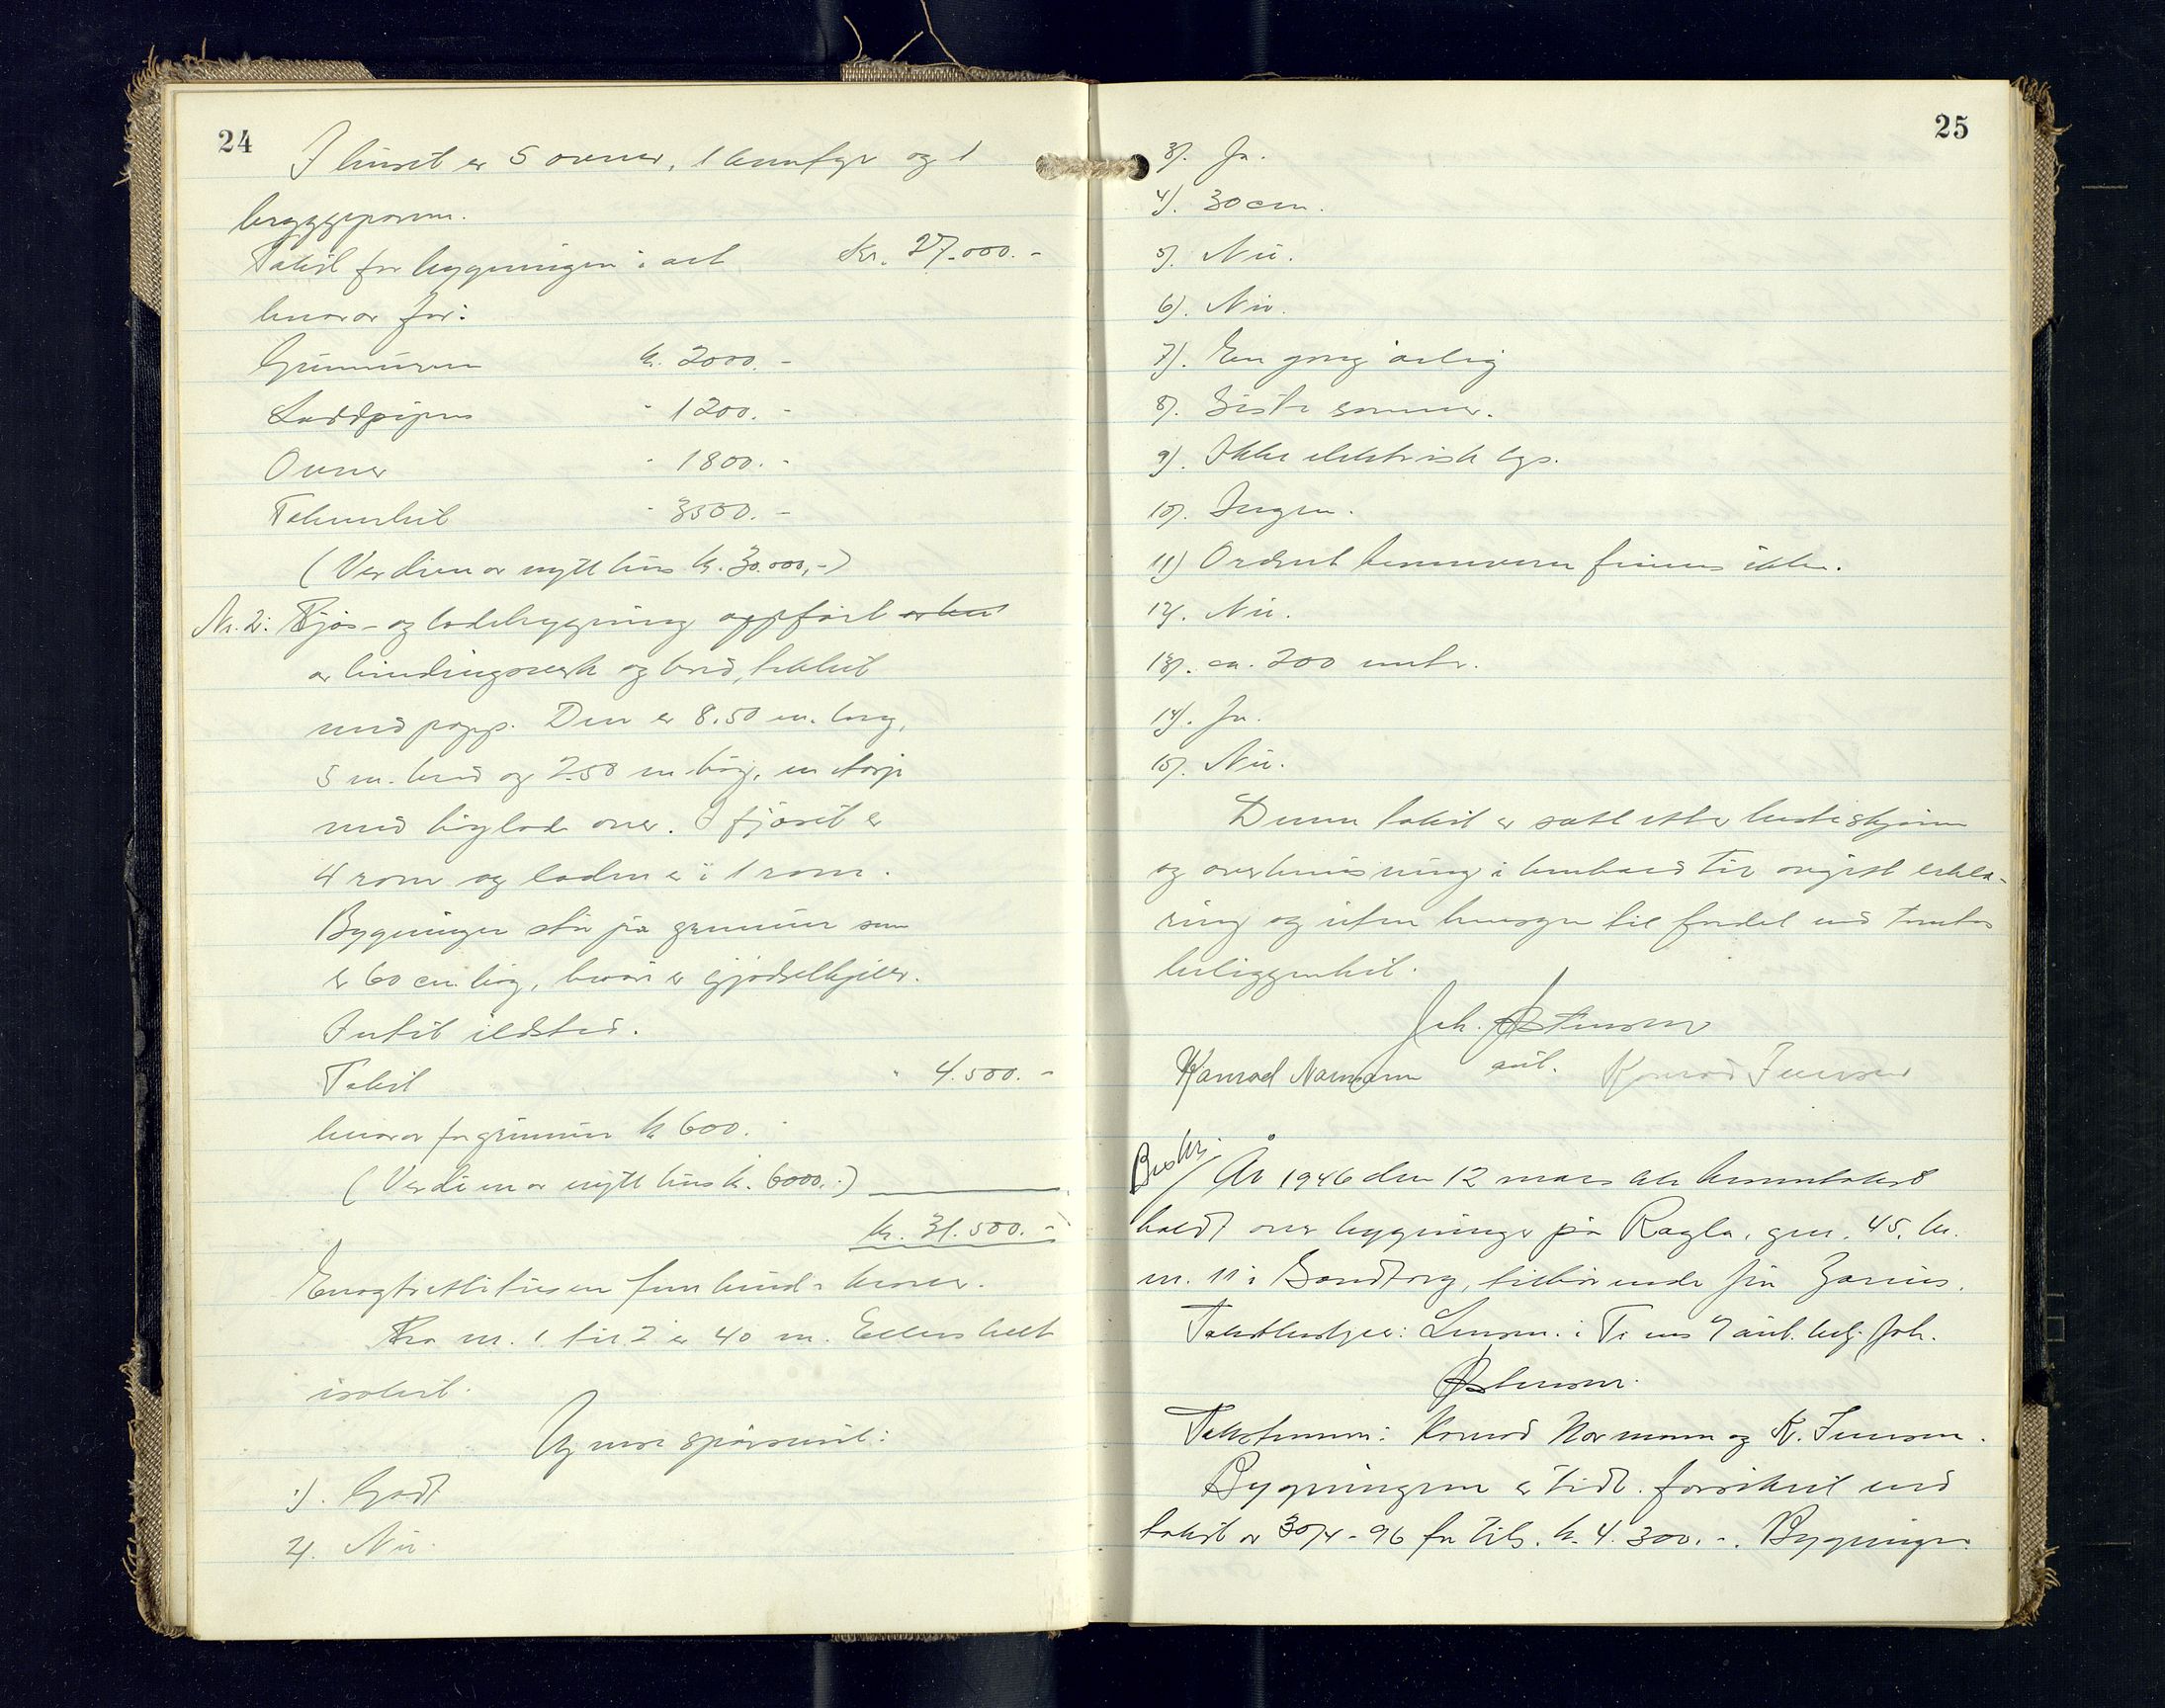 24
I huset er 5 ovner, 1 komfyr og 1
bryggepanne.
Takst for bygningen i alt Kr. 27.000.-
hvorav for:
Grunnmuren kr. 2000.-
Loddpipen " 1200.-
Ovner " 1800.-
Tekniskit " 3500.-
(Verdien av nytt hus kr. 30.000,-)
Nr. 2: Fjøs- og ladebygning oppført
av bindingsverk og bord, tekket
med papp. Den er 8.50 m. lang,
5 m. bred og 2.50 m høg, en etasje
med høylade over. I fjøset er
4 rom og laden er i 1 rom.
Bygningen står på grunnmur som
er 60 cm. høg, hvori er gjødselkjeller.
Intet ildsted.
Takst " 4.500.-
hvorav for grunnmur kr 600.-
(Verdien av nytt hus kr. 6000.-)
kr. 31.500.-
Enogtrettitusen fem hundre kroner.
Fra nr. 1 til 2 er 40 m. Ellers helt
isolert.
Ymse spørsmål:
1). Godt
2). Nei.
25
3). Ja.
4). 30 cm.
5). Nei.
6). Nei.
7). En gang årlig
8). Siste sommer.
9). Ikke elektrisk lys.
10). Ingen.
11) Ordnet brannvern finnes ikke.
12). Nei.
13). ca. 200 mtr.
14). Ja.
15). Nei.
Denne takst er satt etter beste skjønn
og overbevisning i henhold til avgitt erklæ-
ring og uten hensyn til fordel ved tomtens
beliggenhet.
Joh. Østensen
Konrad Normann aut. Konrad Jensen
Beskr.
År 1946 den 12 mars ble branntakst
holdt over bygninger på Ragla, gnr. 45, br.
nr. 11 i Sandtorg, tilhørende fru Zarius.
Takstbestyrer: Lensm. i Tr. ved aut. betj. Joh.
Østensen.
Takstmenn: Konrad Normann og K. Jensen.
Bygningene er tidl. forsikret ved
takst av 30/4-96 for tils. kr. 4.300.-. Bygninger